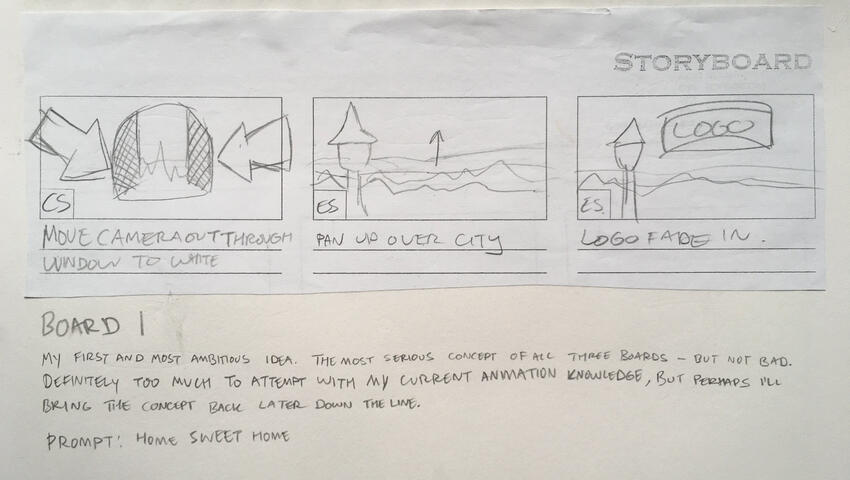 STORYBOARD
CS
MOVE CAMERA OUT THROUGH
WINDOW TO WHITE
ES
PAN UP OVER CITY
LOGO
ES.
LOGO FADE IN.
BOARD 1
MY FIRST AND MOST AMBITIOUS IDEA. THE MOST SERIOUS CONCEPT OF ALL THREE BOARDS – BUT NOT BAD.
DEFINITELY TOO MUCH TO ATTEMPT WITH MY CURRENT ANIMATION KNOWLEDGE, BUT PERHAPS I'LL
BRING THE CONCEPT BACK LATER DOWN THE LINE.
PROMPT: HOME SWEET HOME